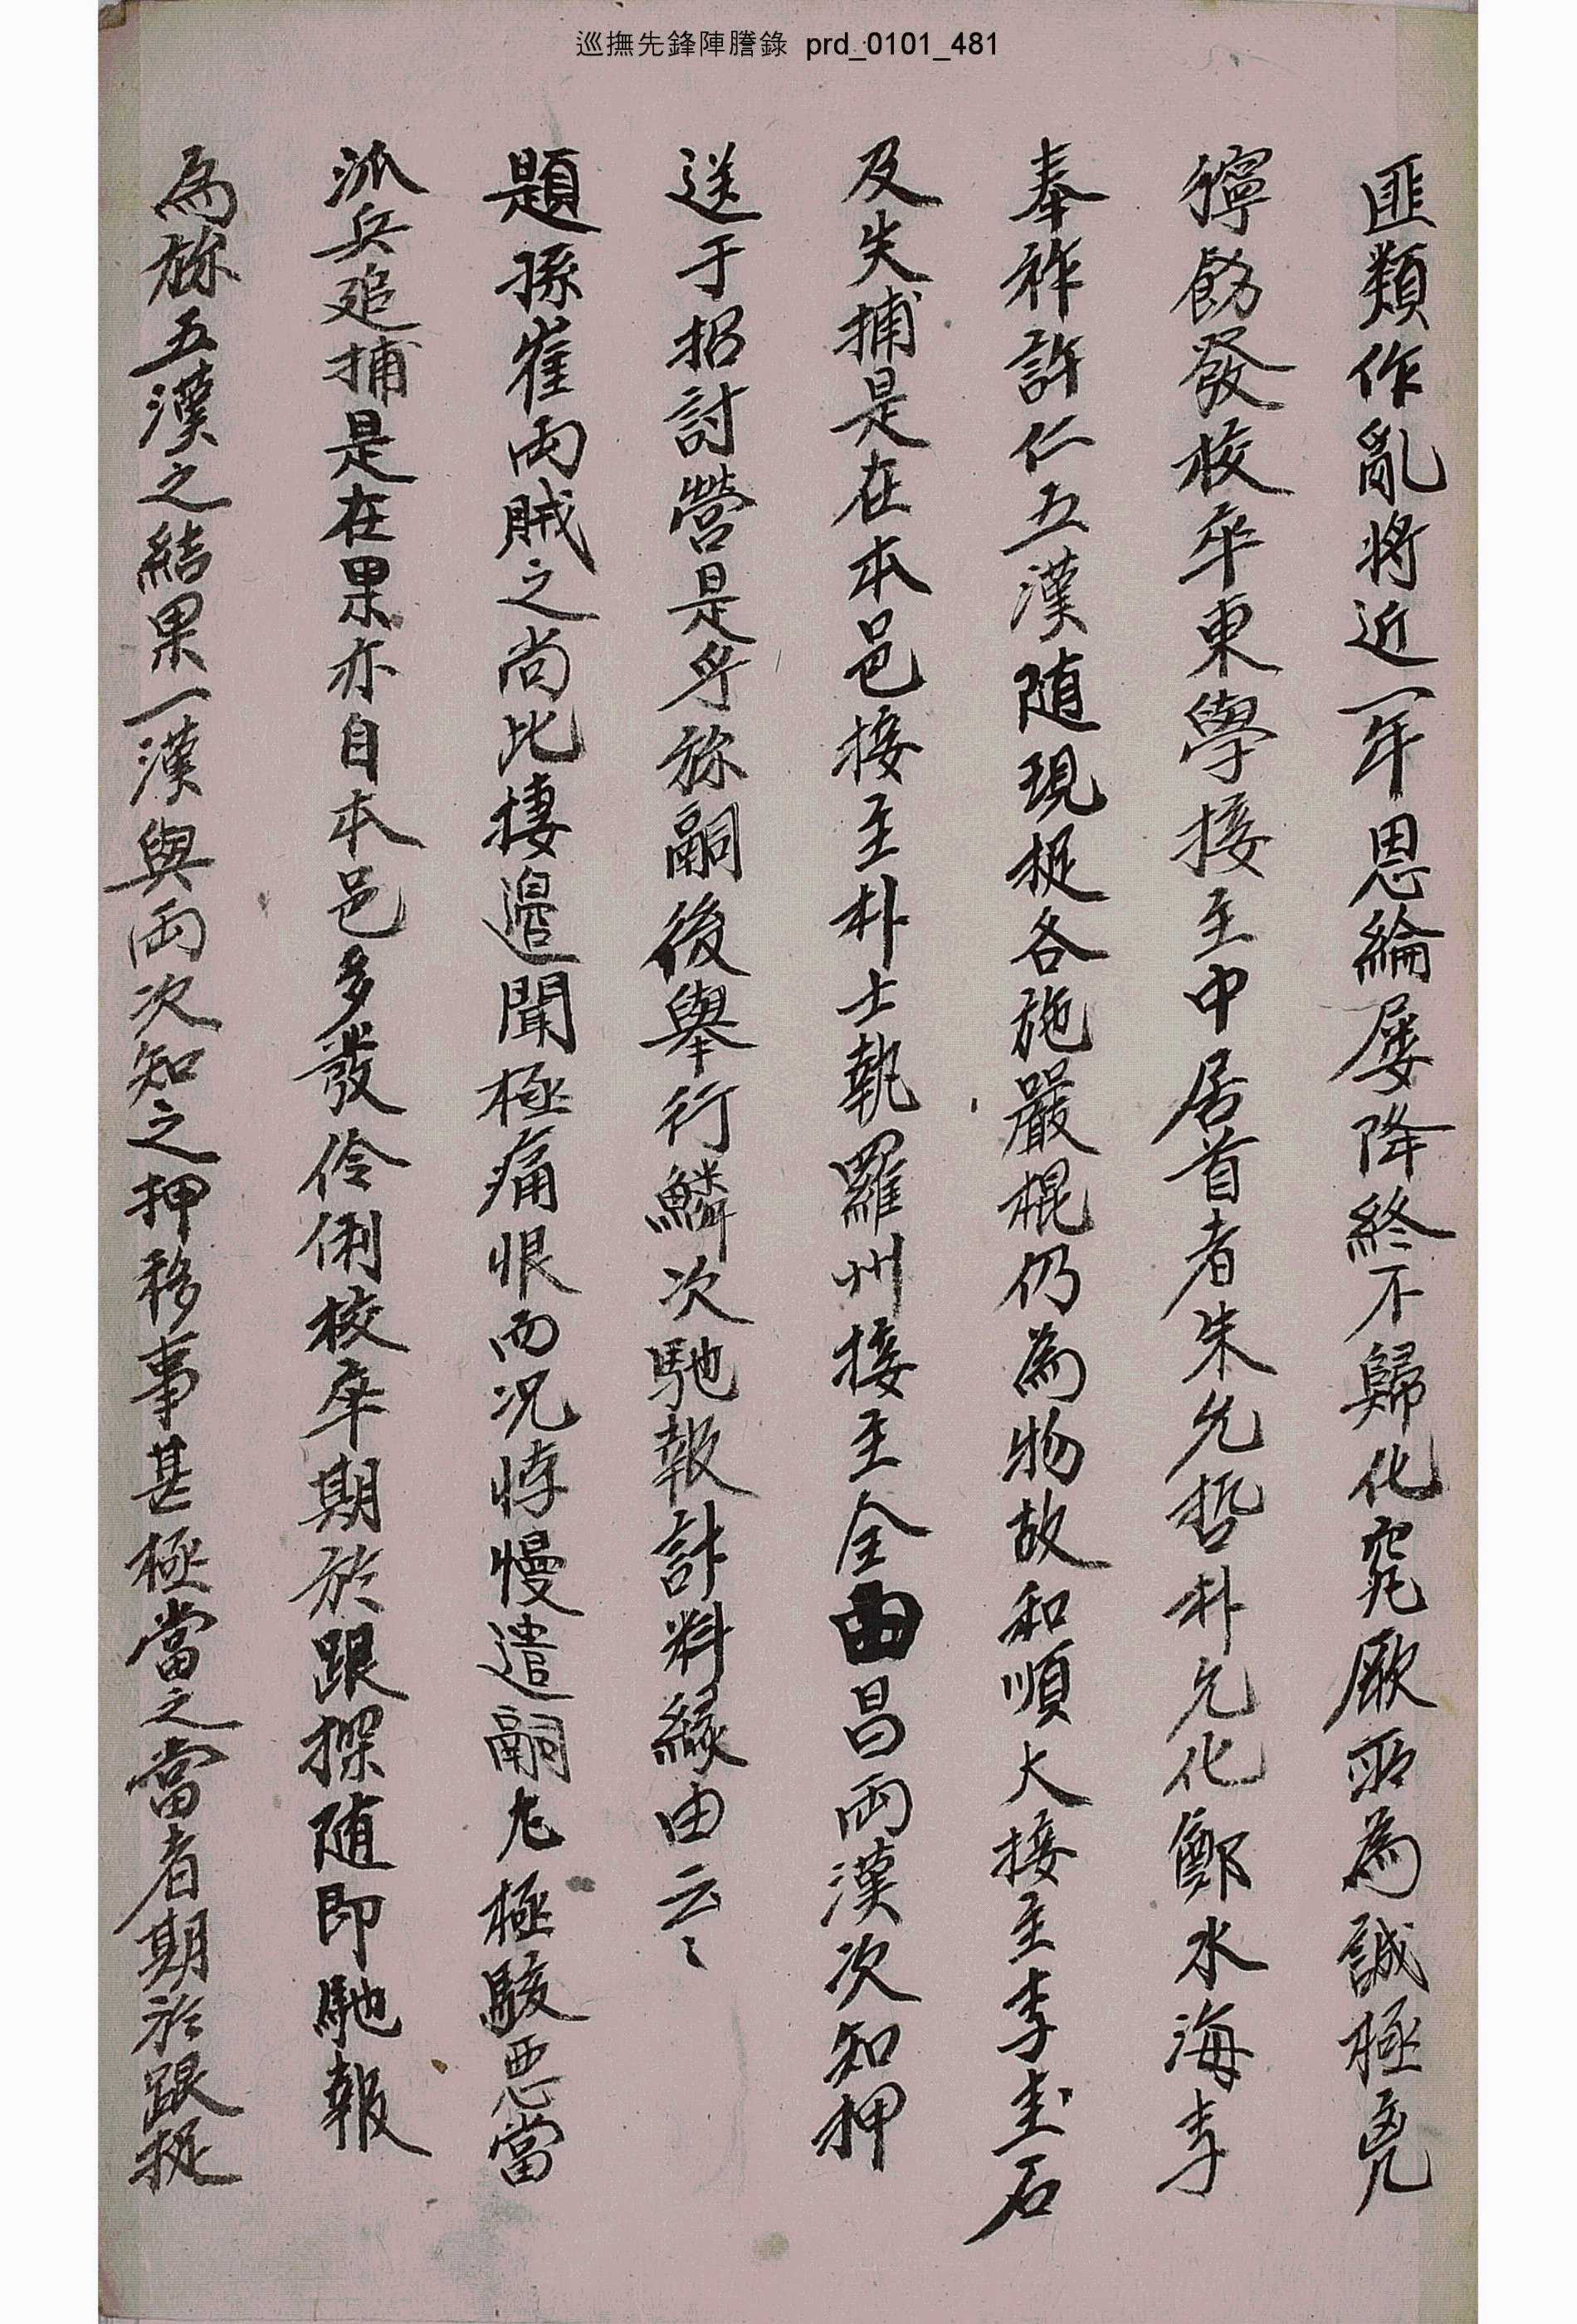 巡撫先鋒陣謄錄 prd_0101_481
匪類作亂將近一年恩綸屢降終不歸化究厥所為誠極兇
獰飭發校卒東學接主中居首者朱允哲朴允化鄭水海李
奉祚許仁五漢随現捉各施嚴棍仍為物故和順大接主李圭石
及失捕是在本邑接主朴士執羅州接主全由昌両漢次知押
送于招討營是乎旀嗣後舉行鱗次馳報計料緣由云〻
題孫崔両賊之尚此捿邉聞極痛恨而况悖慢遣嗣尤極駭惡當
派兵追捕是在果亦自本邑多發伶俐校卒期於跟探随即馳報
為旀五漢之結果一漢與両次知之押移事甚極當之當者期於跟捉